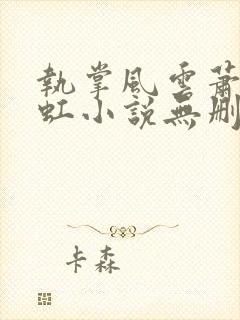 執掌風雲蕭
虹小說無刪
卡森